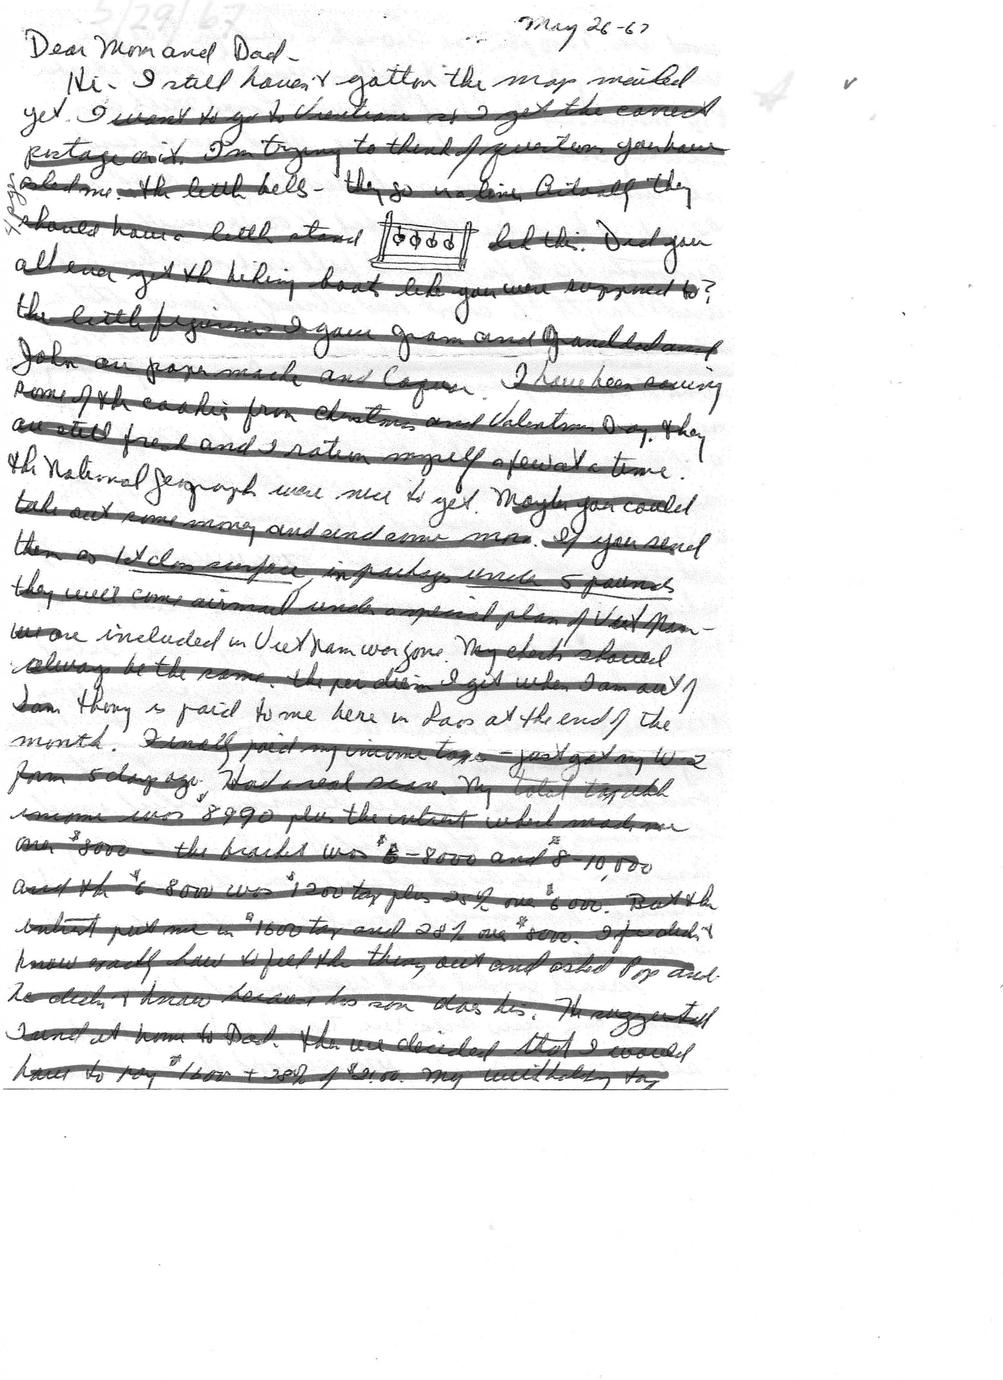 5/29/67
May 26-67
Dear Mom and Dad-
Hi- I still haven't gotten the map mailed
yet. I want to go to Vientiane so I get the correct
postage on it. I'm trying to think of questions you have
asked me. the little bells - they go in a line. Actually they
4 pages
should have a little stand like this. Did you
all ever get the hiking boots like you were supposed to?
the little figurines I gave Gram and Granddad and
John are paper mache and Laquer. I have been saving
some of the cookies from Christmas and Valentines Day. they
are still fresh and I ration myself a few at a time.
the National Geograph were nice to get. Maybe you could
take out some money and send some more. If you send
them as 1st class surface, in package under 5 pounds
they will come airmail under a special plan of Viet Nam-
we are included in Viet Nam war zone. My check should
always be the same. the per diem I get when I am out of
Sam Thong is paid to me here in Laos at the end of the
month. Finally paid my income taxes - just got my W-2
form 5 days ago. Had a real scare. My total taxable
income was $8990 plus the interest which made me
over $8000 - the bracket was $6-8000 and $8-10,000
and the $6-8000 was $1200 tax plus 25% over $6000. But the
interest put me in $1600 tax and 28% over $8000. I just didn't
know exactly how to fill the thing out and asked Pop and
he didn't know because his son does his. He suggested
I send it home to Dad. then we decided that I would
have to pay $1600 + 28% of My witholding tax